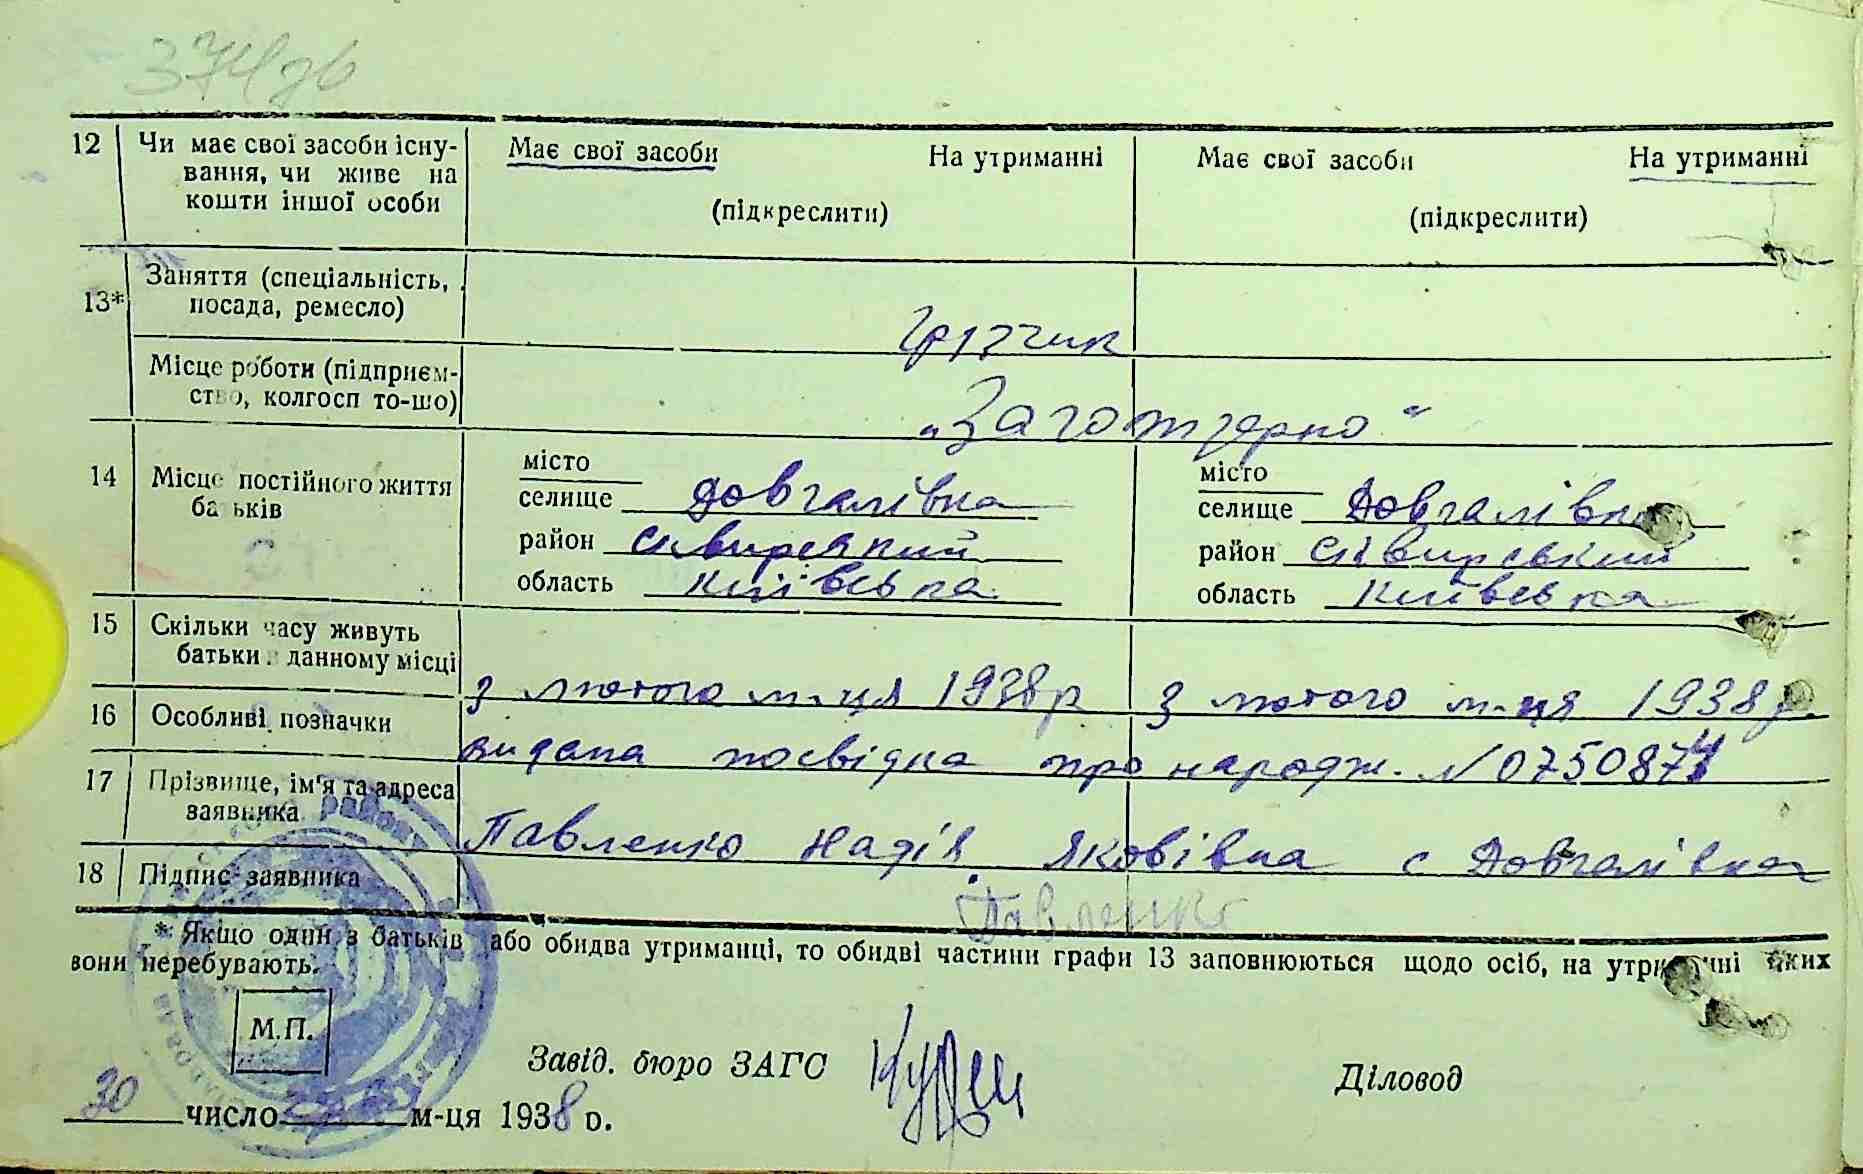 12 Чи має свої засоби існу- Має свої засоби На утриманні Має свої засоби На утриманні
вання, чи живе на
кошти іншої особи (підкреслити) (підкреслити)
13* Заняття (спеціальність,
посада, ремесло)
Місце роботи (підприєм-
ство, колгосп то-що) „Заготзерно“
14 Місце постійного життя місто місто
батьків селище Довгалівка селище Довгалівка
район район
область Київська область Київська
15 Скільки часу живуть
батьки в данному місці з лютого м-ця 1938 р з лютого м-ця 1938 р.
16 Особливі позначки видана посвідка про народж. №
17 Прізвище, ім'я та адреса
заявника Павленко Надія Яковівна с Довгалівка
18 Підпис заявника Павленко
* Якщо один з батьків або обидва утриманці, то обидві частини графи 13 заповнюються щодо осіб, на утриманні яких
вони перебувають.
М.П.
Завід. бюро ЗАГС Діловод
30 число м-ця 1938 р.